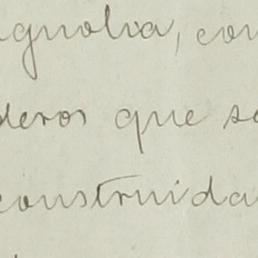 agnolia, con
deros que se
construida